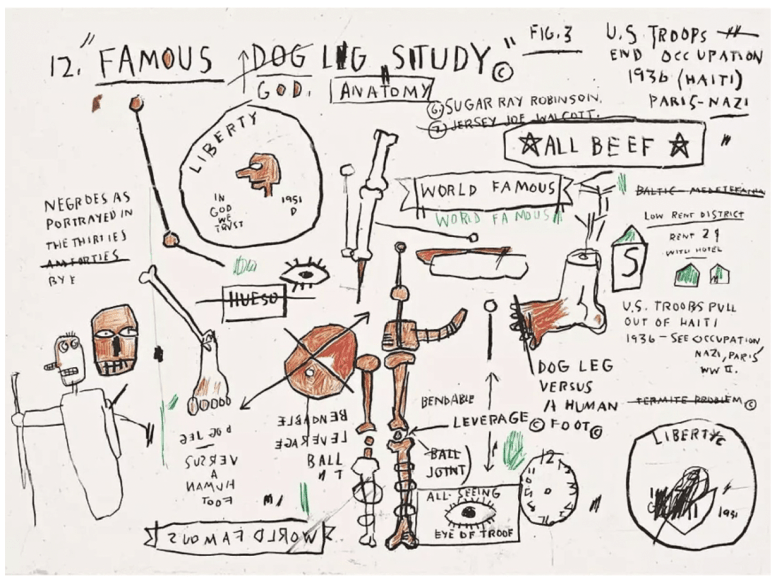 12. "FAMOUS DOG LEG STUDY"©
GOD. ANATOMY
FIG.3
U.S TROOPS
END OCCUPATION
1936 (HAITI)
PARIS-NAZI
6. SUGAR RAY ROBINSON.
7. JERSEY JOE WALCOTT.
☆ALL BEEF☆
LIBERTY
IN
GOD
WE
TRUST
1951
D
WORLD FAMOUS
WORLD FAMOUS
NEGROES AS
PORTRAYED IN
THE THIRTIES
HUESO
LOW RENT DISTRICT
RENT 29
WITH HOTEL
S
U.S. TROOBS PULL
OUT OF HAITI
1936 - SEE OCCUPATION
NAZI, PARIS
WW II.
TERMITE PROBLEM©
DOG LEG
VERSUS
A HUMAN
FOOT©
BENDABLE
LEVERAGE©
BALL
JOINT
BENDABLE
LEVERAGE
BALL
DOG LEG
VERSUS
A
HUMAN
FOOT
WORLD FAMOUS
ALL-SEEING
EYE OF TROOF
12
LIBERTY
1951